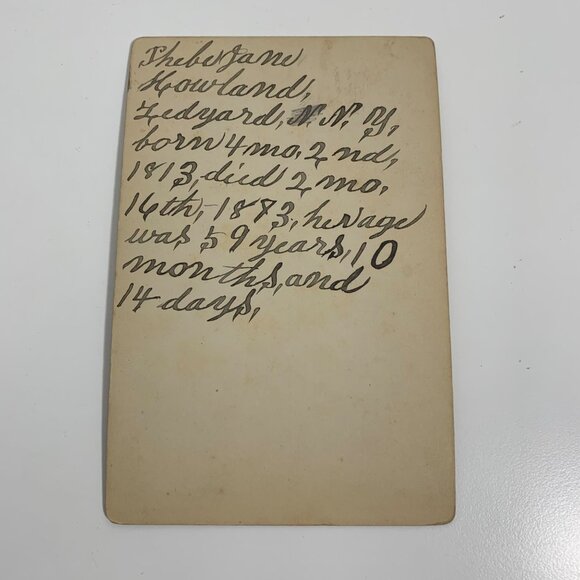 Phebe Jane
Howland,
Ledyard, N. N. Y,
born 4 mo. 2 nd,
1813, died 2 mo,
16th, 1873, her age
was 59 years, 10
months, and
14 days,